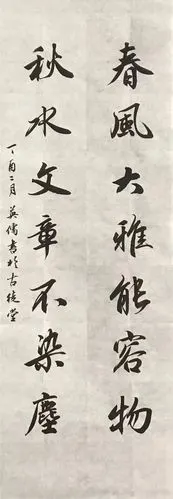 春風大雅能容物
秋水文章不染塵
丁酉二月英儒書於古稜堂